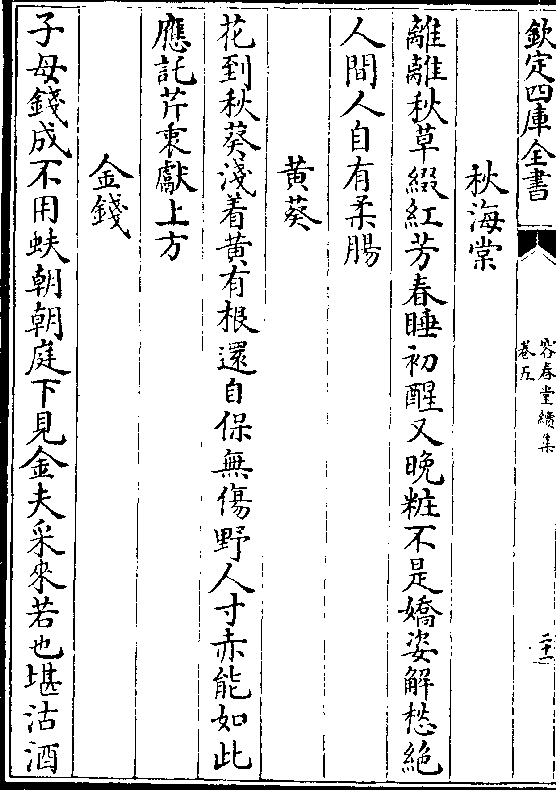 欽定四庫全書
容春堂續集
卷五
二十一
秋海棠
離離秋草綴紅芳春睡初醒又晚粧不是嬌姿解愁絶
人間人自有柔腸
黄葵
花到秋葵淺着黄有根還自保無傷野人寸赤能如此
應託芹東獻上方
金錢
子母錢成不用蚨朝朝庭下見金夫采來若也堪沽酒